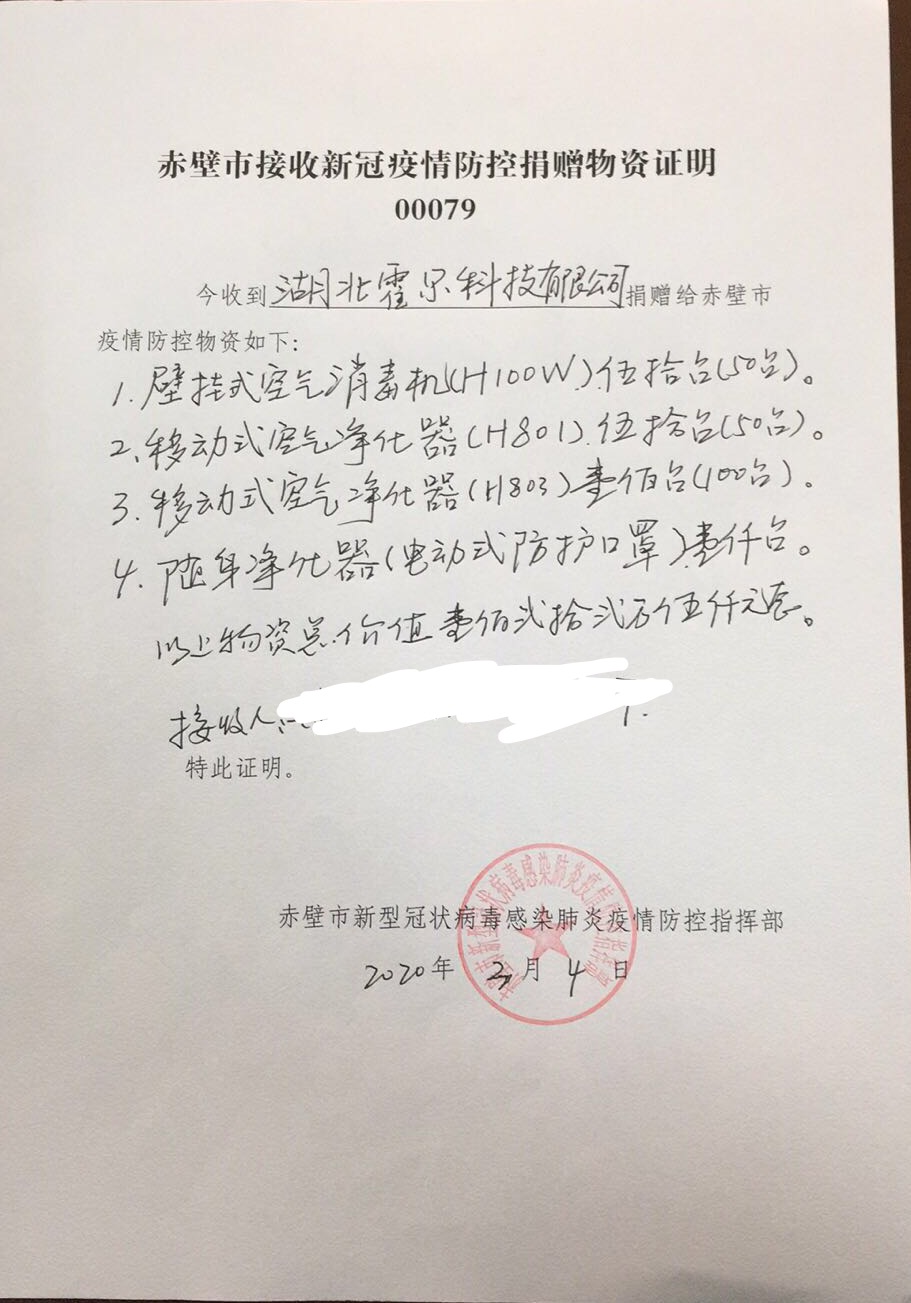 赤壁市接收新冠疫情防控捐赠物资证明
00079
今收到湖北霍尔科技有限公司捐赠给赤壁市
疫情防控物资如下：
1. 壁挂式空气消毒机(H100W).伍拾台(50台)。
2、移动式空气净化器(H801).伍拾台(50台)。
3. 移动式空气净化器(H803)壹佰台(100台)。
4. 随身净化器(电动式防护口罩)壹仟台。
以上物资总价值壹佰贰拾贰万伍仟元整。
接收人：
特此证明。
赤壁市新型冠状病毒感染肺炎疫情防控指挥部
2020年 月4日
赤壁市新型冠状病毒感染肺炎疫情防控指挥部